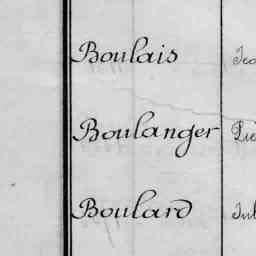 Boulais
Boulanger
Boulard